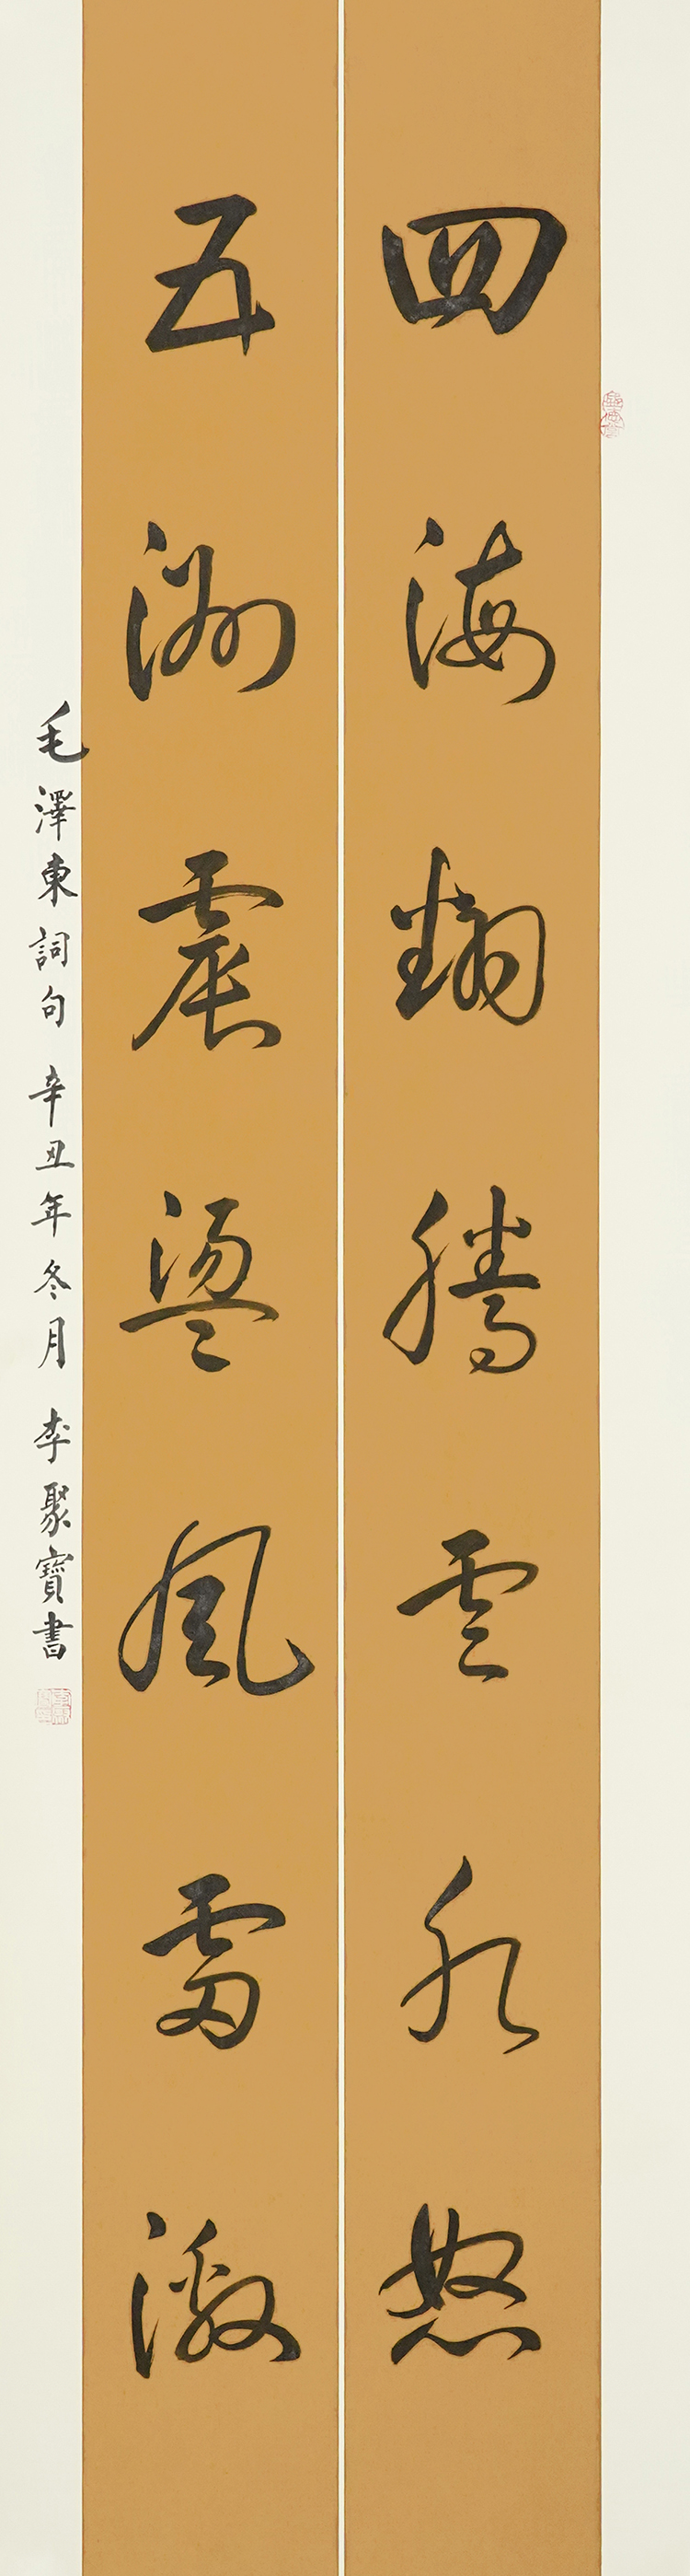 四海翻腾雲水怒
五洲震盪風雷激
毛澤東詞句 辛丑年冬月 李聚寶書